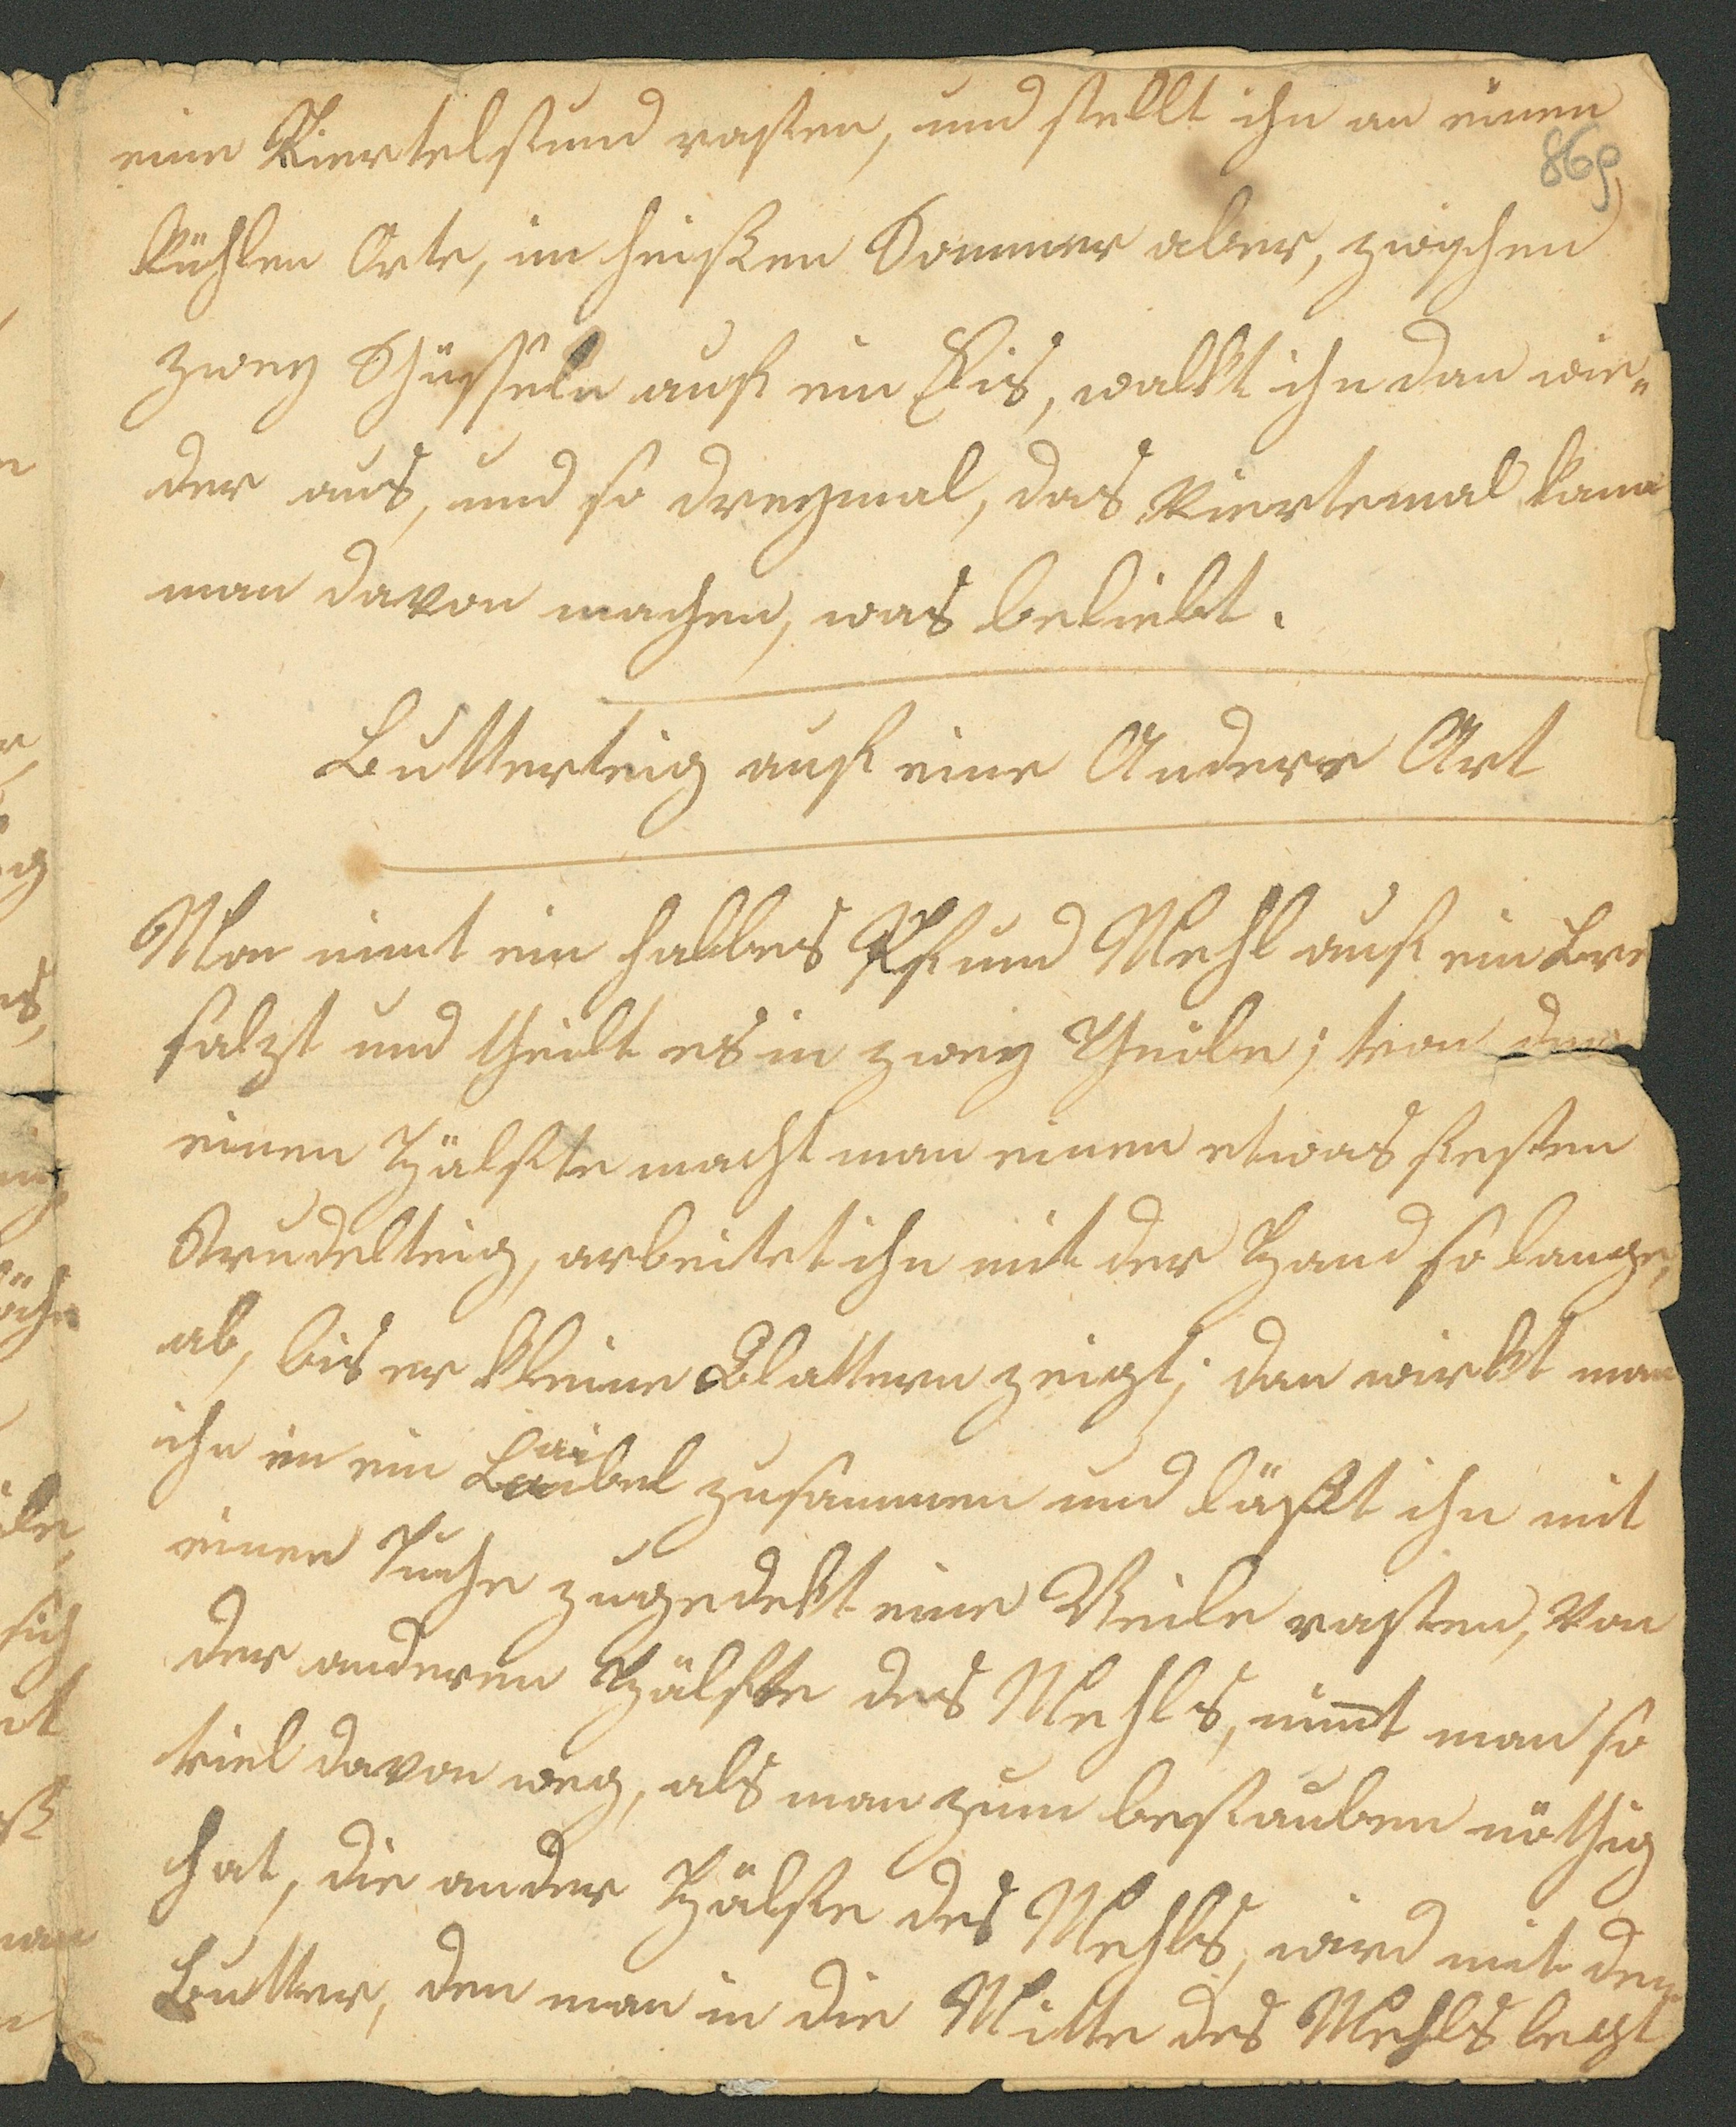 eine Viertelstund rasten, und stellt ihn an einen
869
kühlen Orte, im heißen Sommer aber, zwischen
zwey Schüsseln auf ein Eis, walkt ihn dan wie=
der aus, und so dreymal, das Viertemal kann
man davon machen, was beliebt.
Butterteig auf eine Andere Art
Man nimt ein halbes Pfund Mehl auf ein
salzt und theilt es in zwey Theile; von der
einen Hälfte macht man einen etwas festen
Strudelteig, arbeitet ihn mit der Hand so lange
ab, bis er kleine Blattern zeigt; dan wirkt man
ihn in ein Laibel zusammen und läßt ihn mit
einen Tuche zugedekt eine Weile rasten, Von
der anderen Hälfte des Mehls, nimt man so
viel davon weg, als man zum bestauben nöthig
hat, die ander Hälfte des Mehls, wird mit den
Butter, den man in die Mitte des Mehls legt